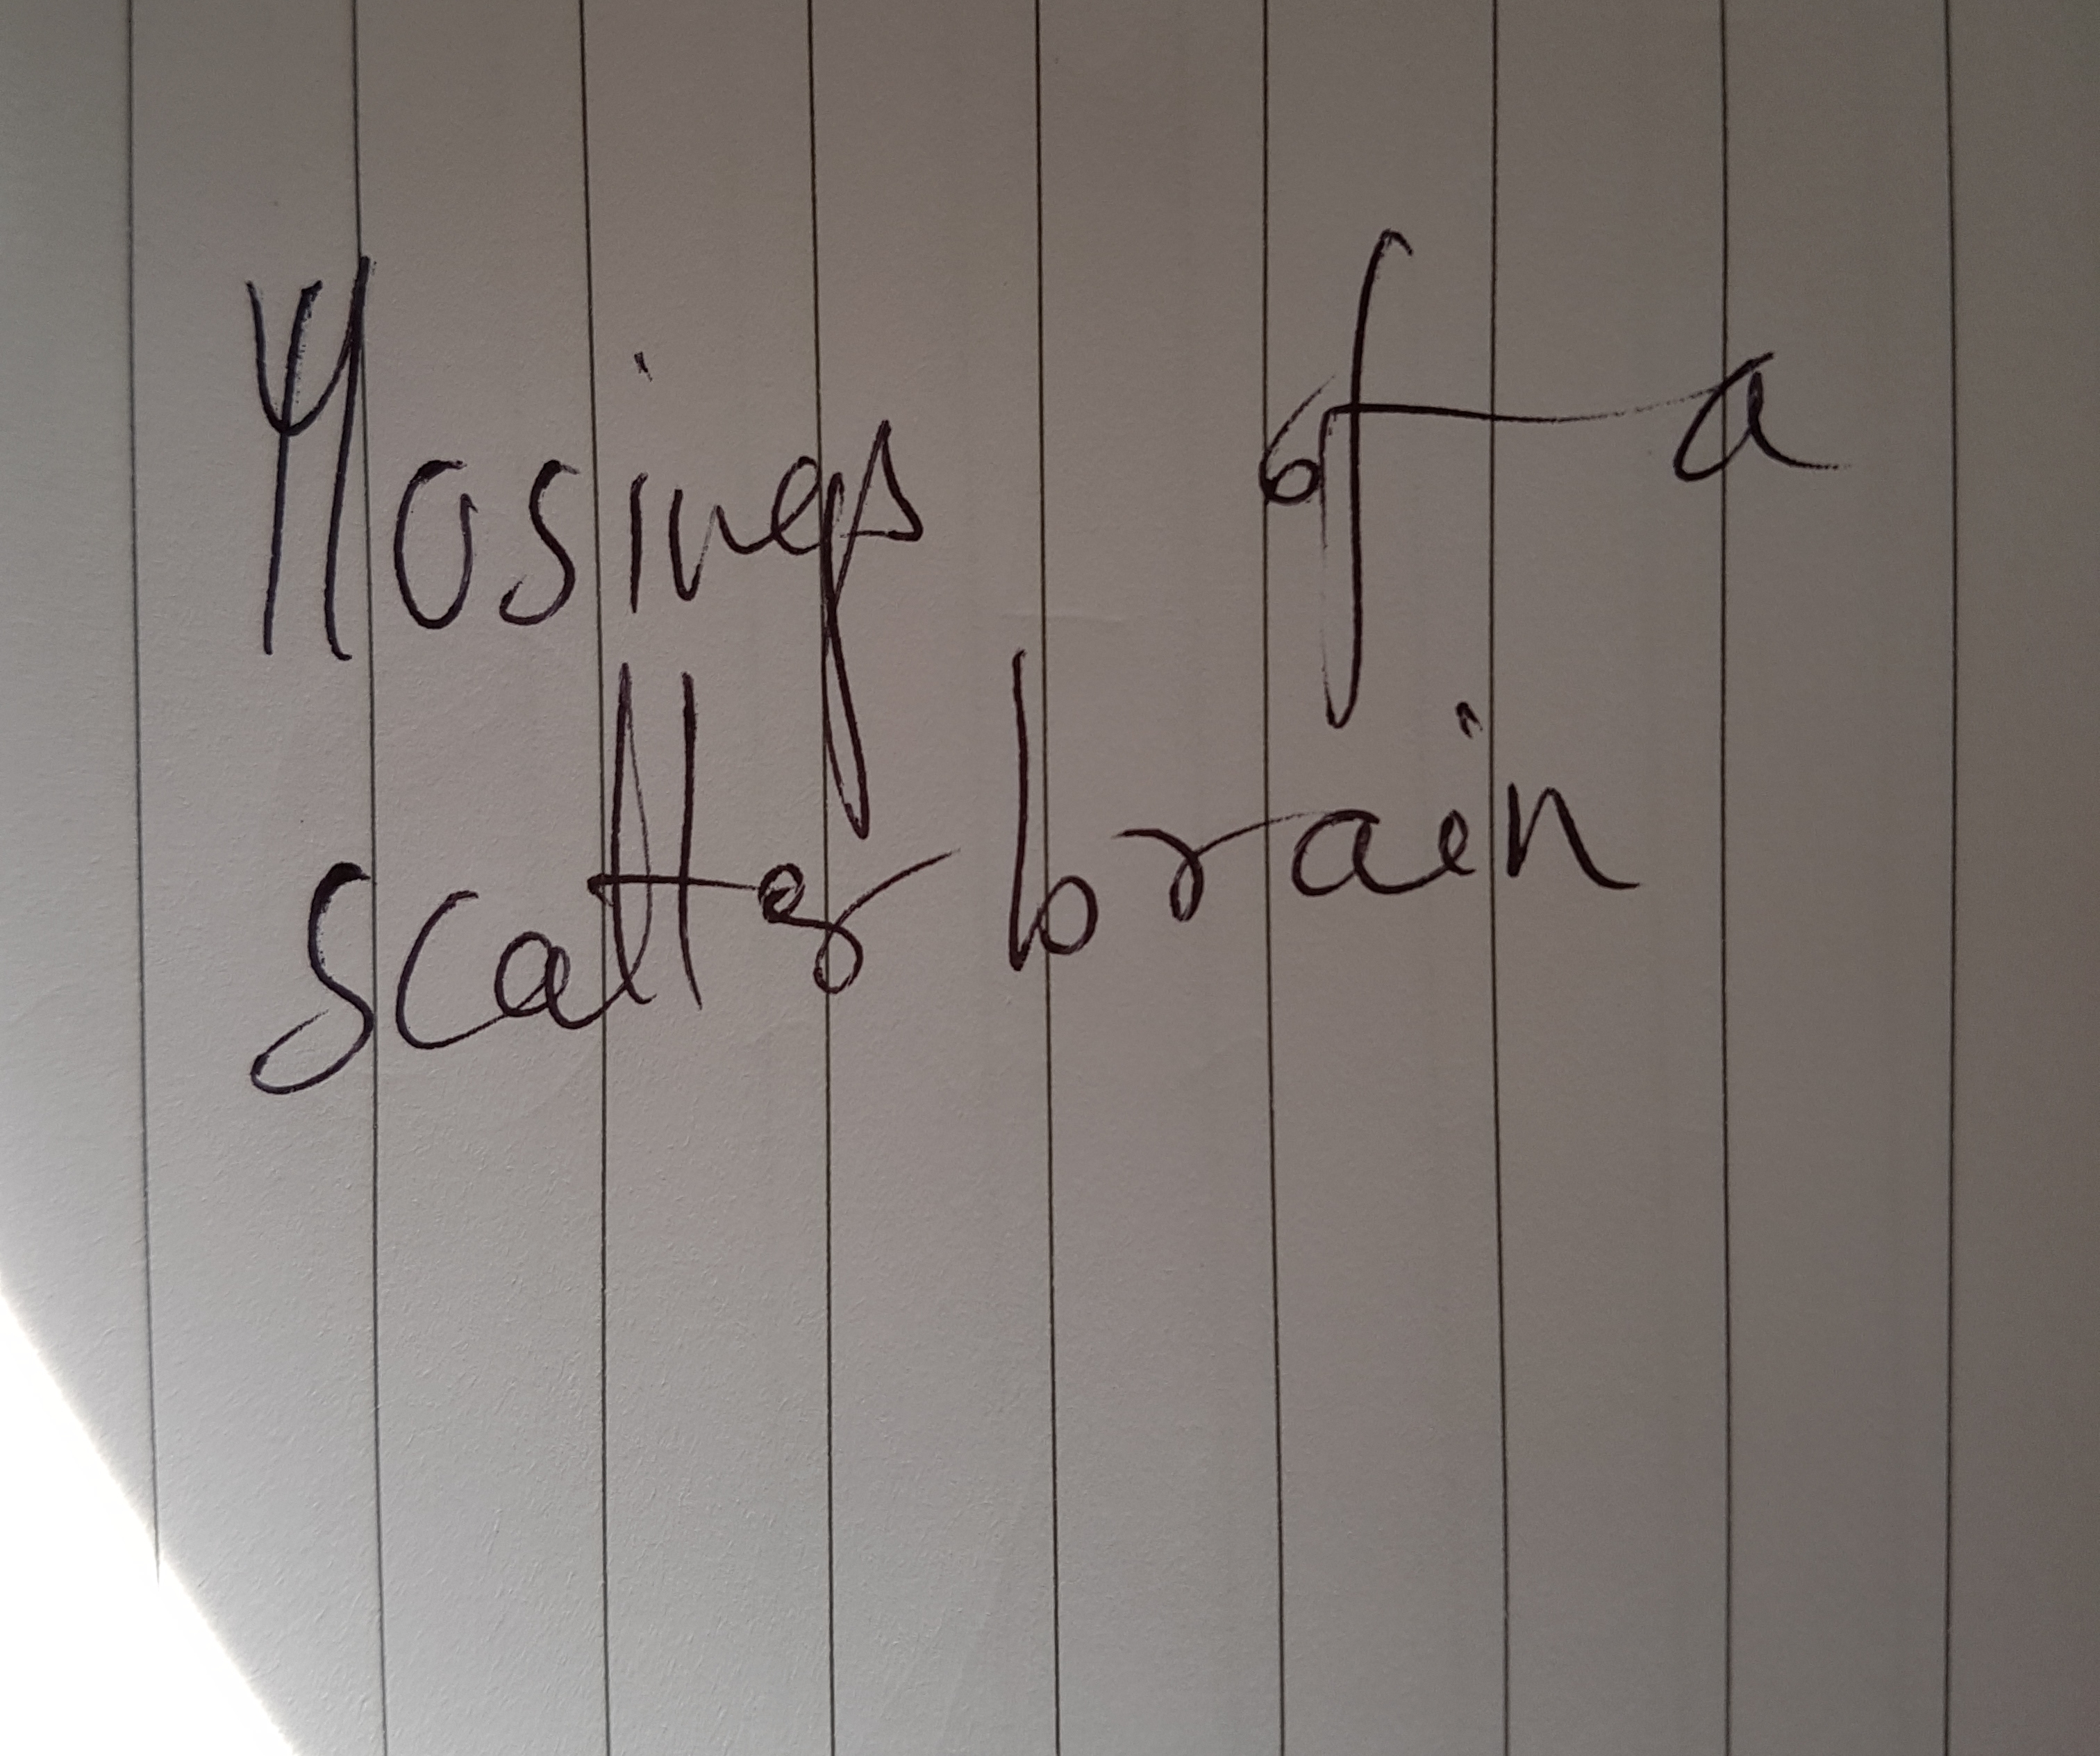 Mosings of a
scatter brain